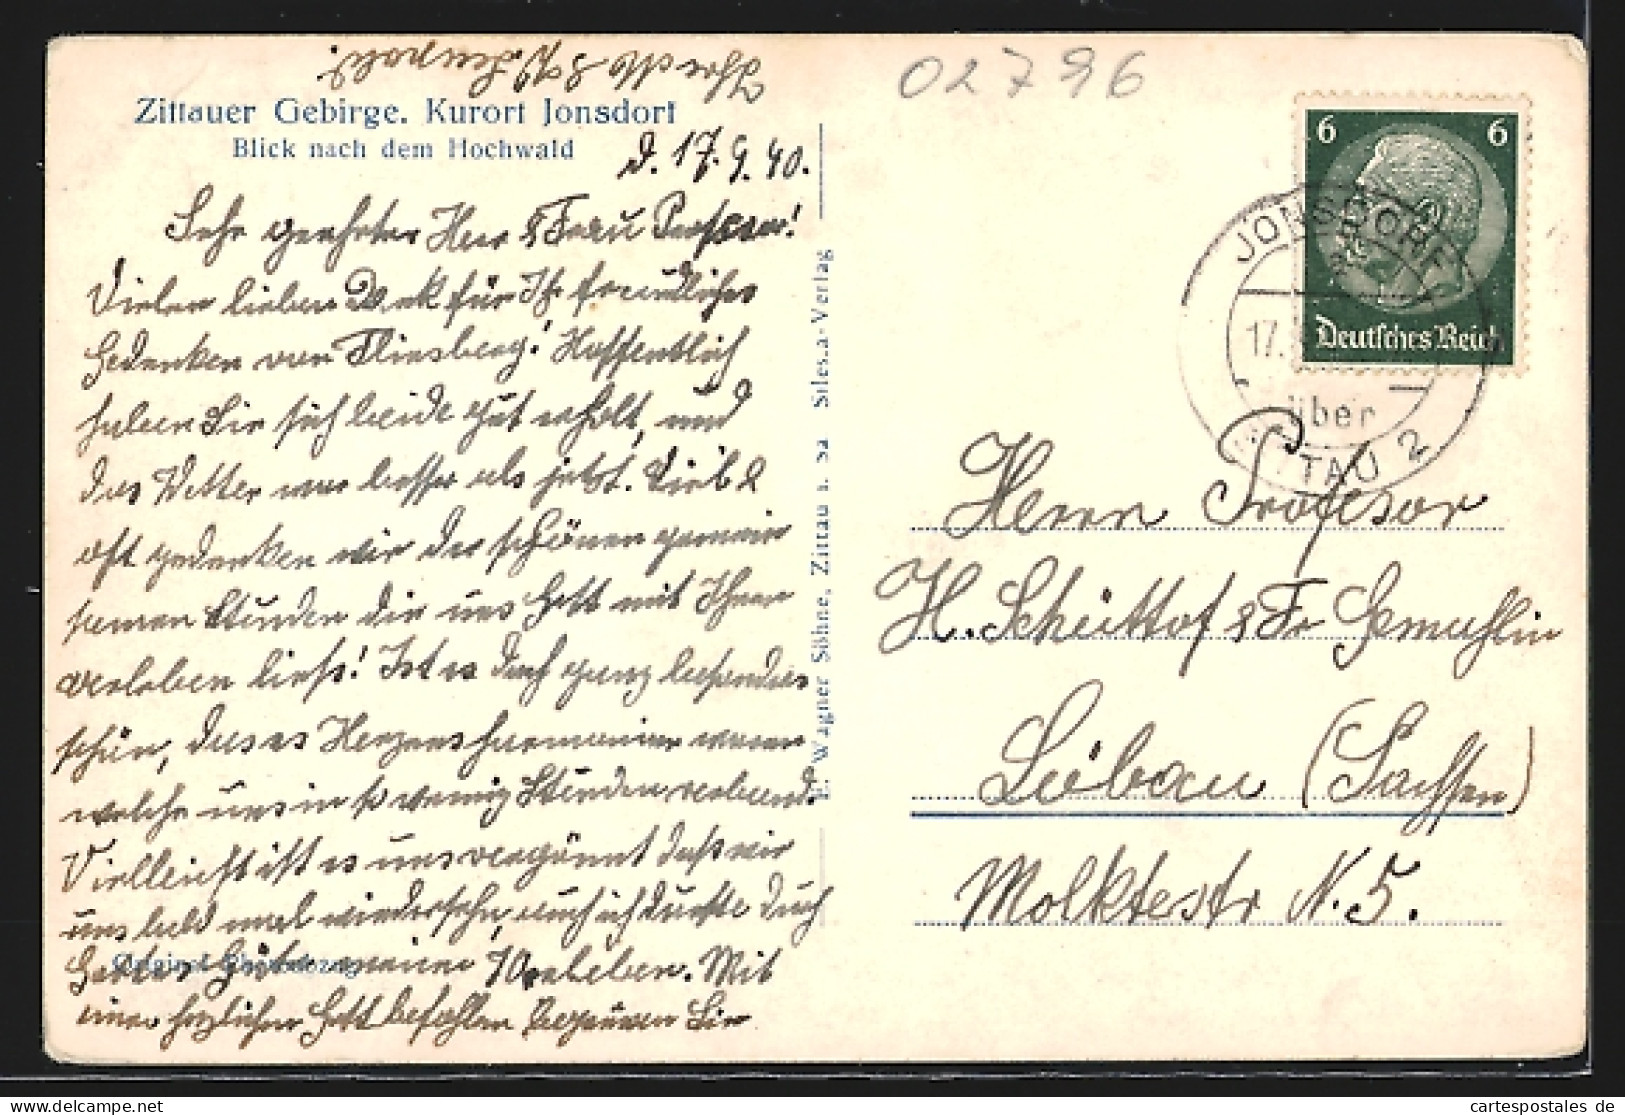 02796
Zittauer Gebirge. Kurort Jonsdorf
Blick nach dem Hochwald
d. 17.9.40.
Sehr geehrter Herr & Frau Professor!
Vielen lieben Dank für Ihr freundliches
Gedenken von Flinsberg! Hoffentlich
haben Sie sich beide gut erholt, und
das Wetter war besser als jetzt. Viel &
oft gedenken wir der schönen gemein
samen Stunden die uns Gott mit Ihnen
verleben ließ! Ist es doch ganz besonders
schön, dass es Herzensharmonien waren
welche uns in so wenig Stunden verband.
Vielleicht ist es uns vergönnt daß wir
uns bald mal wiedersehn, auch ich durfte durch
Gottes Güte meine 70 erleben. Mit
einem herzlichen Gott befohlen begrüssen Sie
Ihre
Original-Photo
E. Wagner Söhne, Zittau i. Sa. Silesia-Verlag
6 6
Deutsches Reich
JONSDORF
17.
über
ZITTAU 2
Herrn Professor
H. Schüttof & Fr Gemahlin
Löbau (Sachsen)
Molktestr N. 5.
cartespostales de